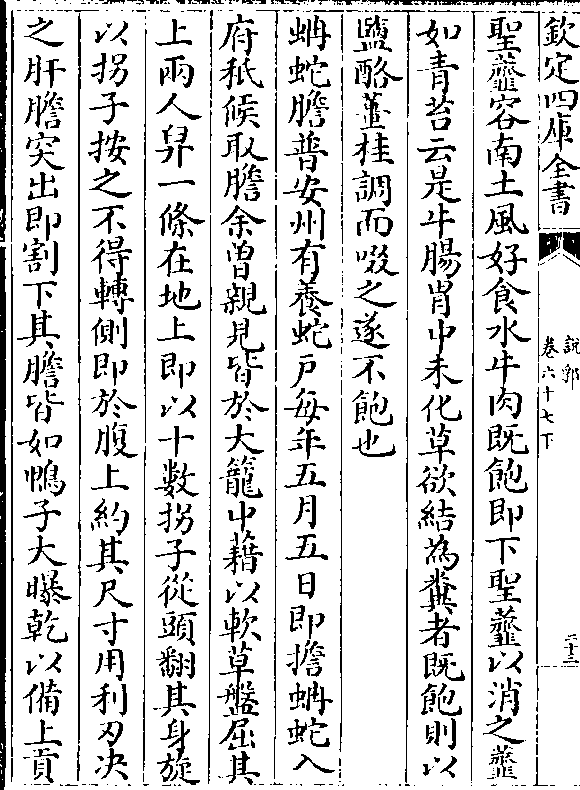 欽定四庫全書
說郛
卷六十七下
二十三
聖虀容南土風好食水牛肉既飽即下聖虀以消之虀
如青苔云是牛腸胃中未化草欲結為糞者既飽則以
鹽酪薑桂調而啜之遂不飽也
蚺蛇膽普安州有養蛇戸每年五月五日即擔蚺蛇入
府秪候取膽余曾親見皆於大籠中藉以軟草盤屈其
上兩人舁一條在地上即以十數拐子從頭翻其身旋
以拐子按之不得轉側即於腹上約其尺寸用利刃决
之肝膽突出即割下其膽皆如鴨子大曝乾以備上貢